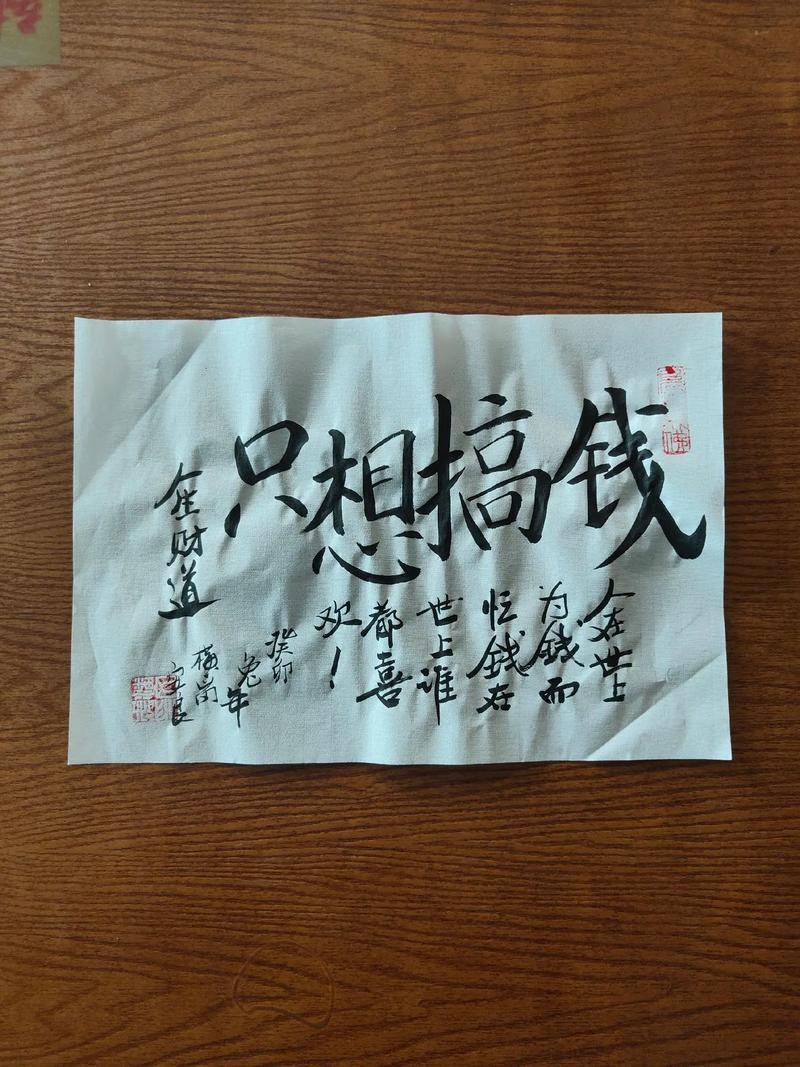 只想搞钱
人在世上
为錢而
忙錢在
世上谁
都喜
欢！
癸卯
兔年
生财道